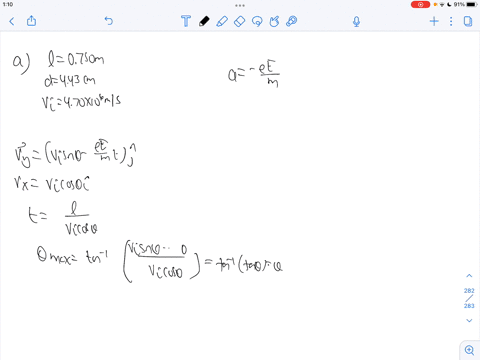 1:10
91%
a) l = 0.75cm
d = 4.43cm
Vi = 4.70×10⁶m/s
a = -eE/m
V⃗y = (Vi sinθ - eE/m t) ĵ
Vx = Vi cosθ î
t = l/(Vi cosθ)
θ max = tan⁻¹ ((Vi sinθ - 0)/(Vi cosθ)) = tan⁻¹ (tanθ) = θ
282
/
283